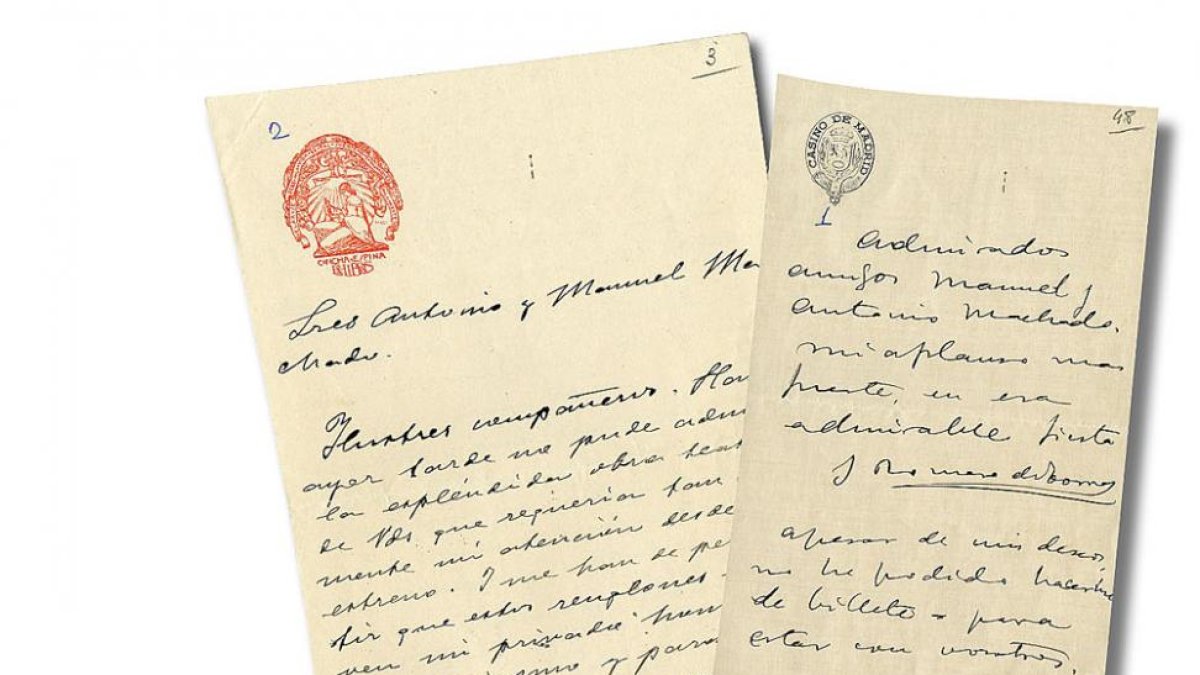 3
2
CONCHA ESPINA
Sres Antonio y Manuel Ma
chado.
Ilustres compañeros. Has
ayer tarde no pude admi
la espléndida obra teat
de Vds que requeria tan
mente mi atención desde
estreno. Y me han de pe
tir que estos renglones
ven mi privadi hom
mo y para
48
CASINO DE MADRID
1
Admirados
amigos Manuel y
Antonio Machado.
mi aplauso mas
fuerte, en esa
admirable fiesta
J Romero de Torres
apesar de mis deseos
no he podido hacerme
de billete - para
estar con vosotros.